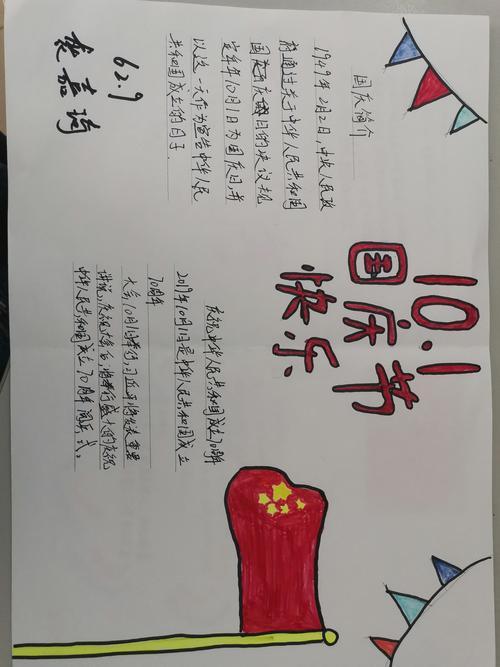 10.1
国庆节
快乐
国庆简介
1949年2月2日,中央人民政
府通过关于中华人民共和国
日的决议规
定每年10月1日为国庆日,并
以这一天作为宣告中华人民
共和国成立的日子.
62.9
嘉琦
庆祝中华人民共和国成立70周年
2019年10月1日是中华人民共和国成立
70周年
大会10月1日举行,习近平将发表重要
讲话,庆祝大会后,将举行盛大的庆祝
中华人民共和国成立70周年阅兵式。